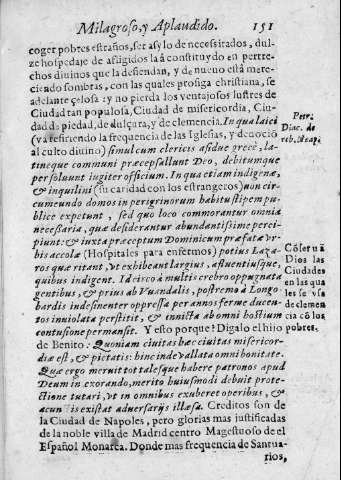 Milagroso, y Aplaudido. 151
coger pobres estraños, ser asylo de necessitados, dul-
ze hospedaje de afligidos la à constituydo en pertre-
chos diuinos que la defiendan, y de nueuo està mere-
ciendo sombras, con las quales prosiga christiana, se
adelante zelosa: y no pierda los ventajosos lustres de
Ciudad tan populosa, Ciudad de misericordia, Ciu-
dad de piedad, de dulçura, y de clemencia. In qua laici
(va refiriendo la frequencia de las Iglesias, y deuociõ
al culto diuino) simul cum clericis assiduè græcè, la-
tineque communi præcepsallunt Deo, debitumque
persoluunt iugiter officium. In qua etiam indigenæ,
& inquilini (su caridad con los estrangeros) non cir-
cumeundo domos in peregrinorum habitu stipem pu-
blicè expetunt, sed quo loco commorantur omnia
necessaria, quæ desiderantur abundantissimè perci-
piunt: & iuxta præceptum Dominicum præfatæ vr-
bis accolæ (Hospitales para enfermos) potius Laza-
ros quæritant, vt exhibeant largius, affluentiusque,
quibus indigent. Id circo à multis crebro oppugnata
gentibus, & prius ab Vuandalis, postremo à Longo-
bardis indesinenter oppressa per annos ferme ducen-
tos inuiolata perstitit, & inuicta ab omni hostium
contusione permansit. Y esto porque? Digalo el hijo
de Benito: Quoniam ciuitas hæc ciuitas misericor-
diæ est, & pietatis: hinc inde vallata omni bonitate.
Quæ ergo meruit tot talesque habere patronos apud
Deum in exorando, merito huiusmodi debuit prote-
ctione tutari, vt in omnibus exuberet operibus, &
à cunctis existat aduersarijs illæsa. Creditos son de
la Ciudad de Napoles, pero glorias mas justificadas
de la noble villa de Madrid centro Magestuoso de el
Español Monarca. Donde mas frequencia de Santua-
rios,
Petr.
Diac. de
reb. Neap.
Cõseruã
Dios las
Ciudades
en las qua
les se vsa
de clemen
cia cõ los
pobres.